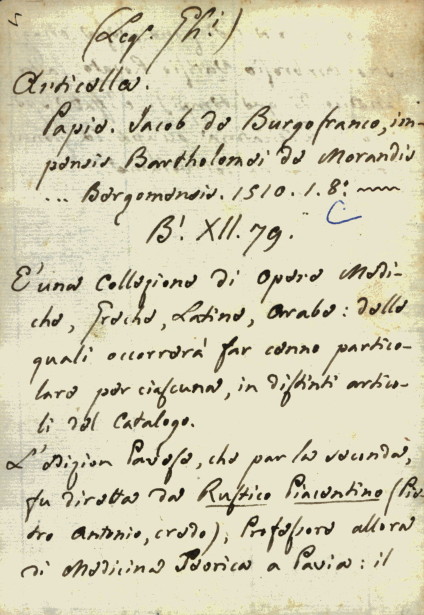 (Leg. Ghi)
Articella.
Papie. Jacob de Burgofranco, im-
pensis Bartholomei de Morandis
... Bergomensis. 1510. 1. 8:
B! XII. 79.
E' una Collezione di Opere Medi-
che, Greche, Latine, Arabe: delle
quali occorrerà far cenno partico-
lare per ciascuna, in distinti artico-
li del Catalogo.
L'edizion Pavese, che par la seconda,
fu diretta da Rustico Piacentino (Pie-
tro Antonio, credo), Professore allora
di Medicina Teorica a Pavia: il